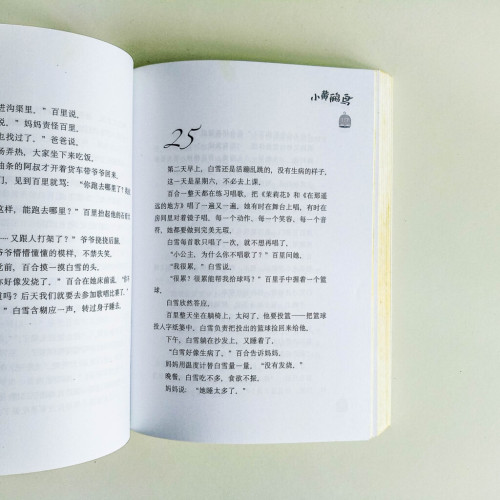 进沟渠里。”百里说。
说。”妈妈责怪百里。
也找过了。”爸爸说。
汤弄热，大家坐下来吃饭。
油条的阿叔才开着货车带爷爷回来。
们，见到百里就骂：“你跑去哪里了？
这样，能跑去哪里？”百里抬起他的右
……又跟人打架了？”爷爷挠挠后脑。
爷爷懵懵懂懂的模样，不禁失笑。
觉前，百合摸一摸白雪的头。
你好像发烧了。”百合在她床前说。
道吗？后天我们就要去参加歌唱比赛了。”
”白雪含糊应一声，转过身子睡去。
小黄鹂鸟
25
第二天早上，白雪还是活蹦乱跳的，没有生病的样子。
这一天是星期六，不必去上课。
百合一整天都在练习唱歌，把《茉莉花》和《在那遥
远的地方》唱了一遍又一遍。她有时在舞台上唱，有时在
房间里对着镜子唱。每一个动作、每一个笑容、每一个音
符，她都要做到完美无瑕。
白雪每首歌只唱了一次，就不想再唱了。
“小公主，为什么你不唱歌了？”百里问她。
“我很累。”白雪说。
“很累？很累能帮我拾球吗？”百里手中握着一个篮
球。
白雪欣然答应。
百里整天坐在躺椅上，太闷了，他要投篮——把篮球
投入字纸篓中，白雪负责把投出的篮球捡回来给他。
下午，白雪躺在沙发上，又睡着了。
“白雪好像生病了。”百合告诉妈妈。
妈妈用温度计替白雪量一量，“没有发烧。”
晚餐，白雪吃不多，食欲不振。
妈妈说：“她睡太多了。”